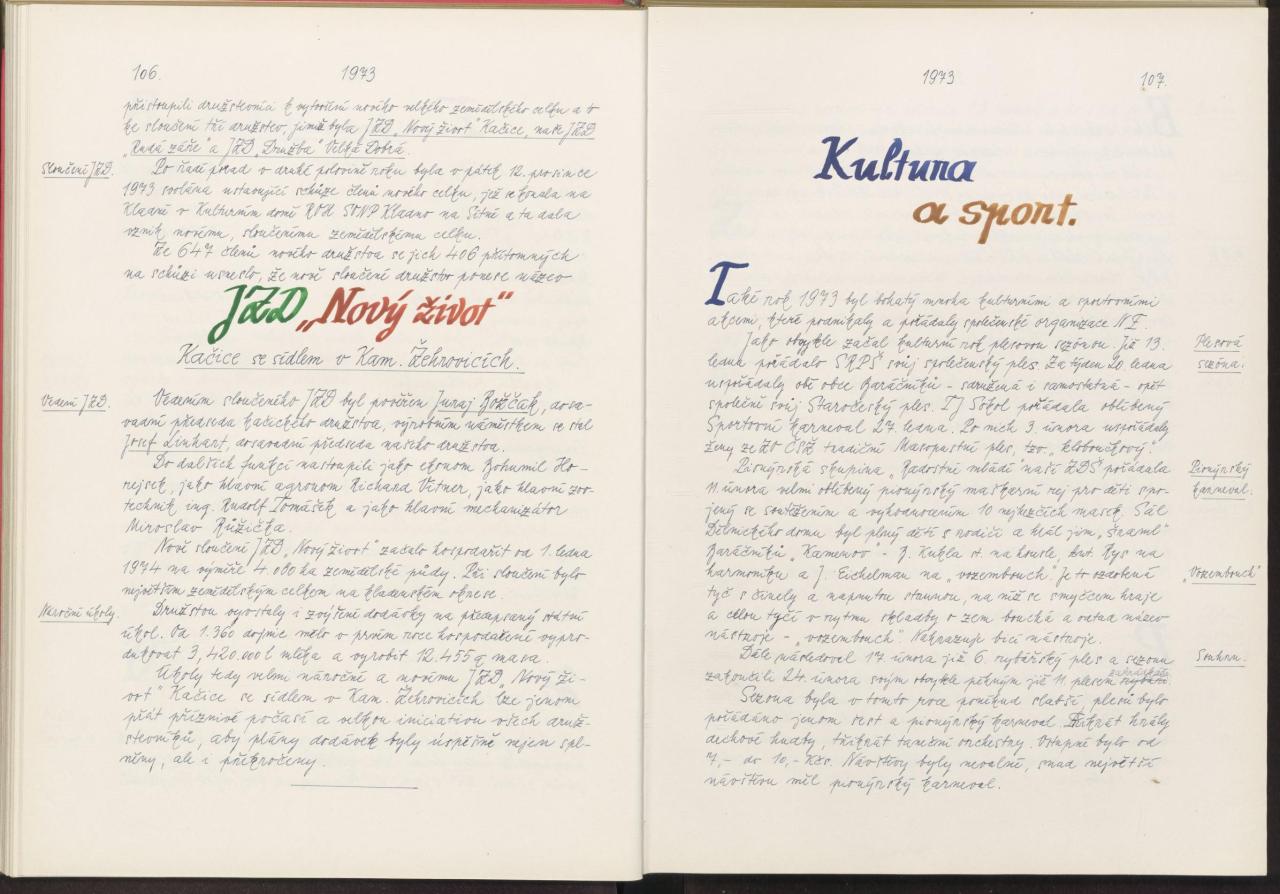 106.
1973
přistoupili družstevníci k vytvoření nového velkého zemědělského celku a to
ke sloučení tří družstev, jimiž byla JZD „Nový život" Kačice, naše JZD
„Rudá záře" a JZD „Družba" Velká Dobrá.
Sloučení JZD.
Po řadě porad v druhé polovině roku byla v pátek 12. prosince
1973 svolána ustavující schůze členů nového celku, jež se konala na
Kladně v Kulturním domě ROH SONP Kladno na Sítné a ta dala
vznik novému, sloučenému zemědělskému celku.
Ze 647 členů nového družstva se jich 406 přítomných
na schůzi usneslo, že nově sloučené družstvo ponese název
JZD „Nový život"
Kačice se sídlem v Kam. Žehrovicích.
Vedení JZD.
Vedením sloučeného JZD byl pověřen Juraj Božčák, dosa-
vadní předseda kačického družstva, výrobním náměstkem se stal
Josef Linhart, dosavadní předseda našeho družstva.
Do dalších funkcí nastoupili jako ekonom Bohumil Ho-
rejsek, jako hlavní agronom Richard Vitner, jako hlavní zoo-
technik ing. Rudolf Tomášek a jako hlavní mechanizátor
Miroslav Růžička.
Nově sloučené JZD „Nový život" začalo hospodařit od 1. ledna
1974 na výměře 4.080 ha zemědělské půdy. Při sloučení bylo
největším zemědělským celkem na kladenském okrese.
Náročné úkoly.
Družstvu vyvstaly i zvýšené dodávky na předepsaný státní
úkol. Od 1.360 dojnic mělo v prvním roce hospodaření vypro-
dukovat 3,420.000 l mléka a vyrobit 12.455 q masa.
Úkoly tedy velmi náročné a novému JZD „Nový ži-
vot" Kačice se sídlem v Kam. Žehrovicích lze jenom
přát příznivé počasí a velkou iniciativu všech druž-
stevníků, aby plány dodávek byly úspěšně nejen spl-
něny, ale i překročeny.
1973
107.
Kultura
a sport.
Také rok 1973 byl bohatý mnoha kulturními a sportovními
akcemi, které podnikaly a pořádaly společenské organizace NF.
Plesová
sezóna.
Jako obvykle začal kulturní rok plesovou sezónou. Již 13.
ledna pořádalo SRPŠ svůj společenský ples. Za týden 20. ledna
uspořádaly obě obce Baráčníků - sdružená i samostatná - opět
společně svůj Staročeský ples. TJ Sokol pořádala oblíbený
Sportovní karneval 27. ledna. Po nich 3. února uspořádaly
ženy ze ZO ČSŽ tradiční Masopustní ples, tzv. „kloboučkový".
Pionýrský
karneval.
Pionýrská skupina „Radostné mládí naší ZDŠ pořádala
11. února velmi oblíbený pionýrský maškarní rej pro děti spo-
jený se soutěžením a vyhodnocením 10 nejhezčích masek. Sál
Dělnického domu byl plný dětí s rodiči a hrál jim „šraml"
Baráčníků „Kamenov" - B. Kukla st. na housle, Ant. Rys na
„Vozembouch"
harmoniku a J. Eichelman na „vozembouch". Je to ozdobená
tyč s činely a napnutou strunou, na níž se smyčcem hraje
a celou tyčí v rytmu skladby o zem bouchá a odtud název
nástroje - „vozembouch". Nahrazuje bicí nástroje.
Souhrn.
Dále následoval 17. února již 6. rybářský ples a sezonu
zakončili 24. února svým obvykle pěkným již 11. plesem zahrádkáři.
Sezona byla v tomto roce poněkud slabší, plesů bylo
pořádáno jenom šest a pionýrský karneval. Pětkrát hrály
dechové hudby, třikrát taneční orchestry. Vstupné bylo od
7,- do 10,- Kčs. Návštěvy byly nevalné, snad největší
návštěvu měl pionýrský karneval.